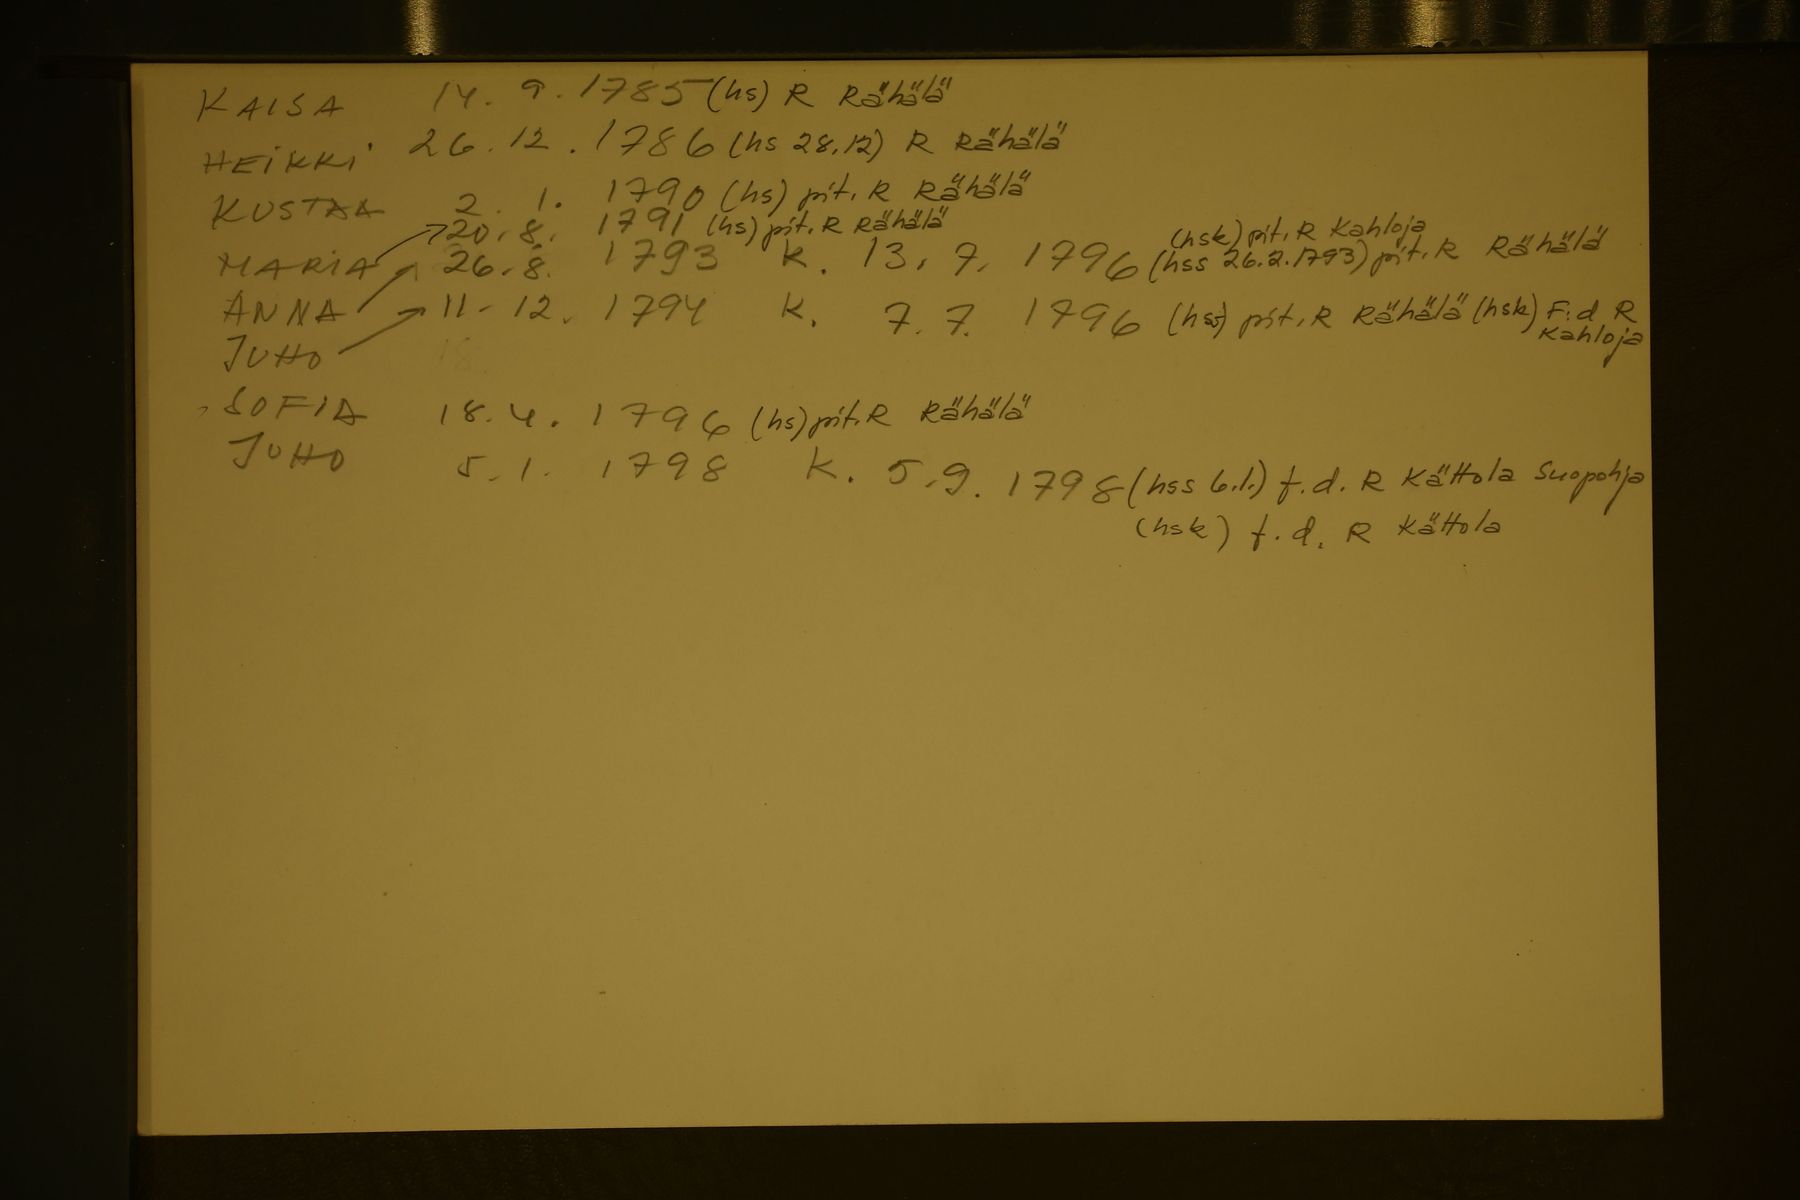 KAISA 14. 9. 1785 (hs) R Rähälä
HEIKKI 26. 12. 1786 (hs 28.12) R Rähälä
KUSTAA 2. 1. 1790 (hs) pit. R Rähälä
20. 8. 1791 (hs) pit. R Rähälä
(hsk) pit. R Kahloja
MARIA 26. 8. 1793 K. 13. 7. 1796 (hss 26.2.1793) pit. R Rähälä
ANNA 11. 12. 1794 K. 7. 7. 1796 (hss) pit. R Rähälä (hsk) F.d R
Kahloja
JUHO
SOFIA 18. 4. 1796 (hs) pit. R Rähälä
JUHO 5. 1. 1798 K. 5. 9. 1798 (hss 6.1.) f.d. R Kättola Suopohja
(hsk) f.d. R Kättola